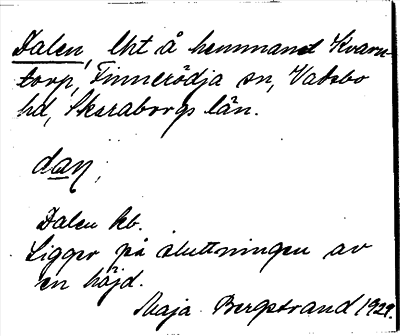 Dalen, lht å hemmanet Kvarn-
torp, Finnerödja sn, Vadsbo
hd, Skaraborgs län.
dan,
Dalen kb.
Ligger på sluttningen av
en höjd.
Maja Bergstrand 1929.